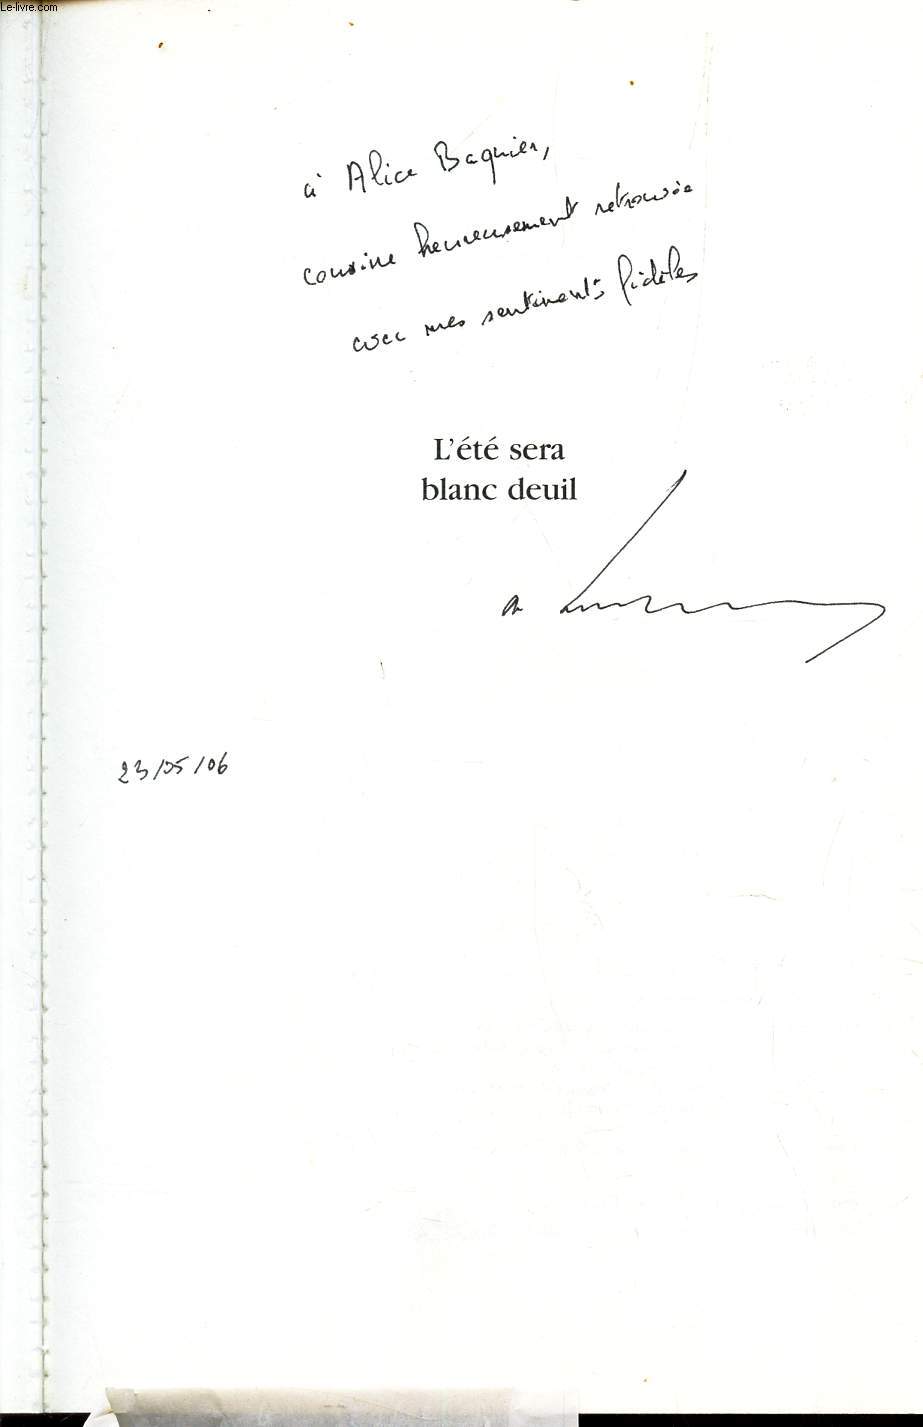 Le-livre.com
à Alice Baquier,
cousine heureusement retrouvée
avec mes sentiments fidèles
L'été sera
blanc deuil
23/05/06